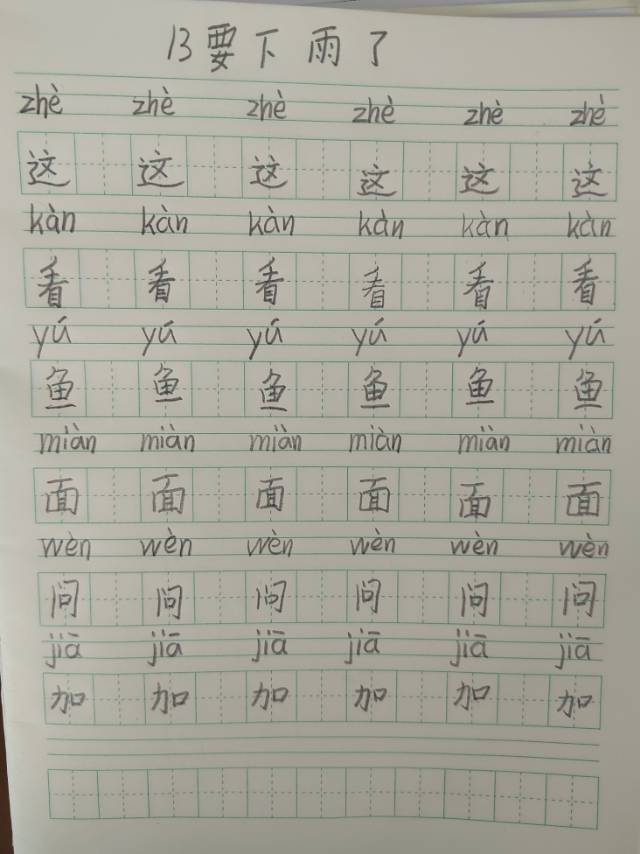 13要下雨了
zhè zhè zhè zhè zhè zhè
这 这 这 这 这 这
kàn kàn kàn kàn kàn kàn
看 看 看 看 看 看
yú yú yú yú yú yú
鱼 鱼 鱼 鱼 鱼 鱼
miàn miàn miàn miàn miàn miàn
面 面 面 面 面 面
wèn wèn wèn wèn wèn wèn
问 问 问 问 问 问
jiā jiā jiā jiā jiā jiā
加 加 加 加 加 加